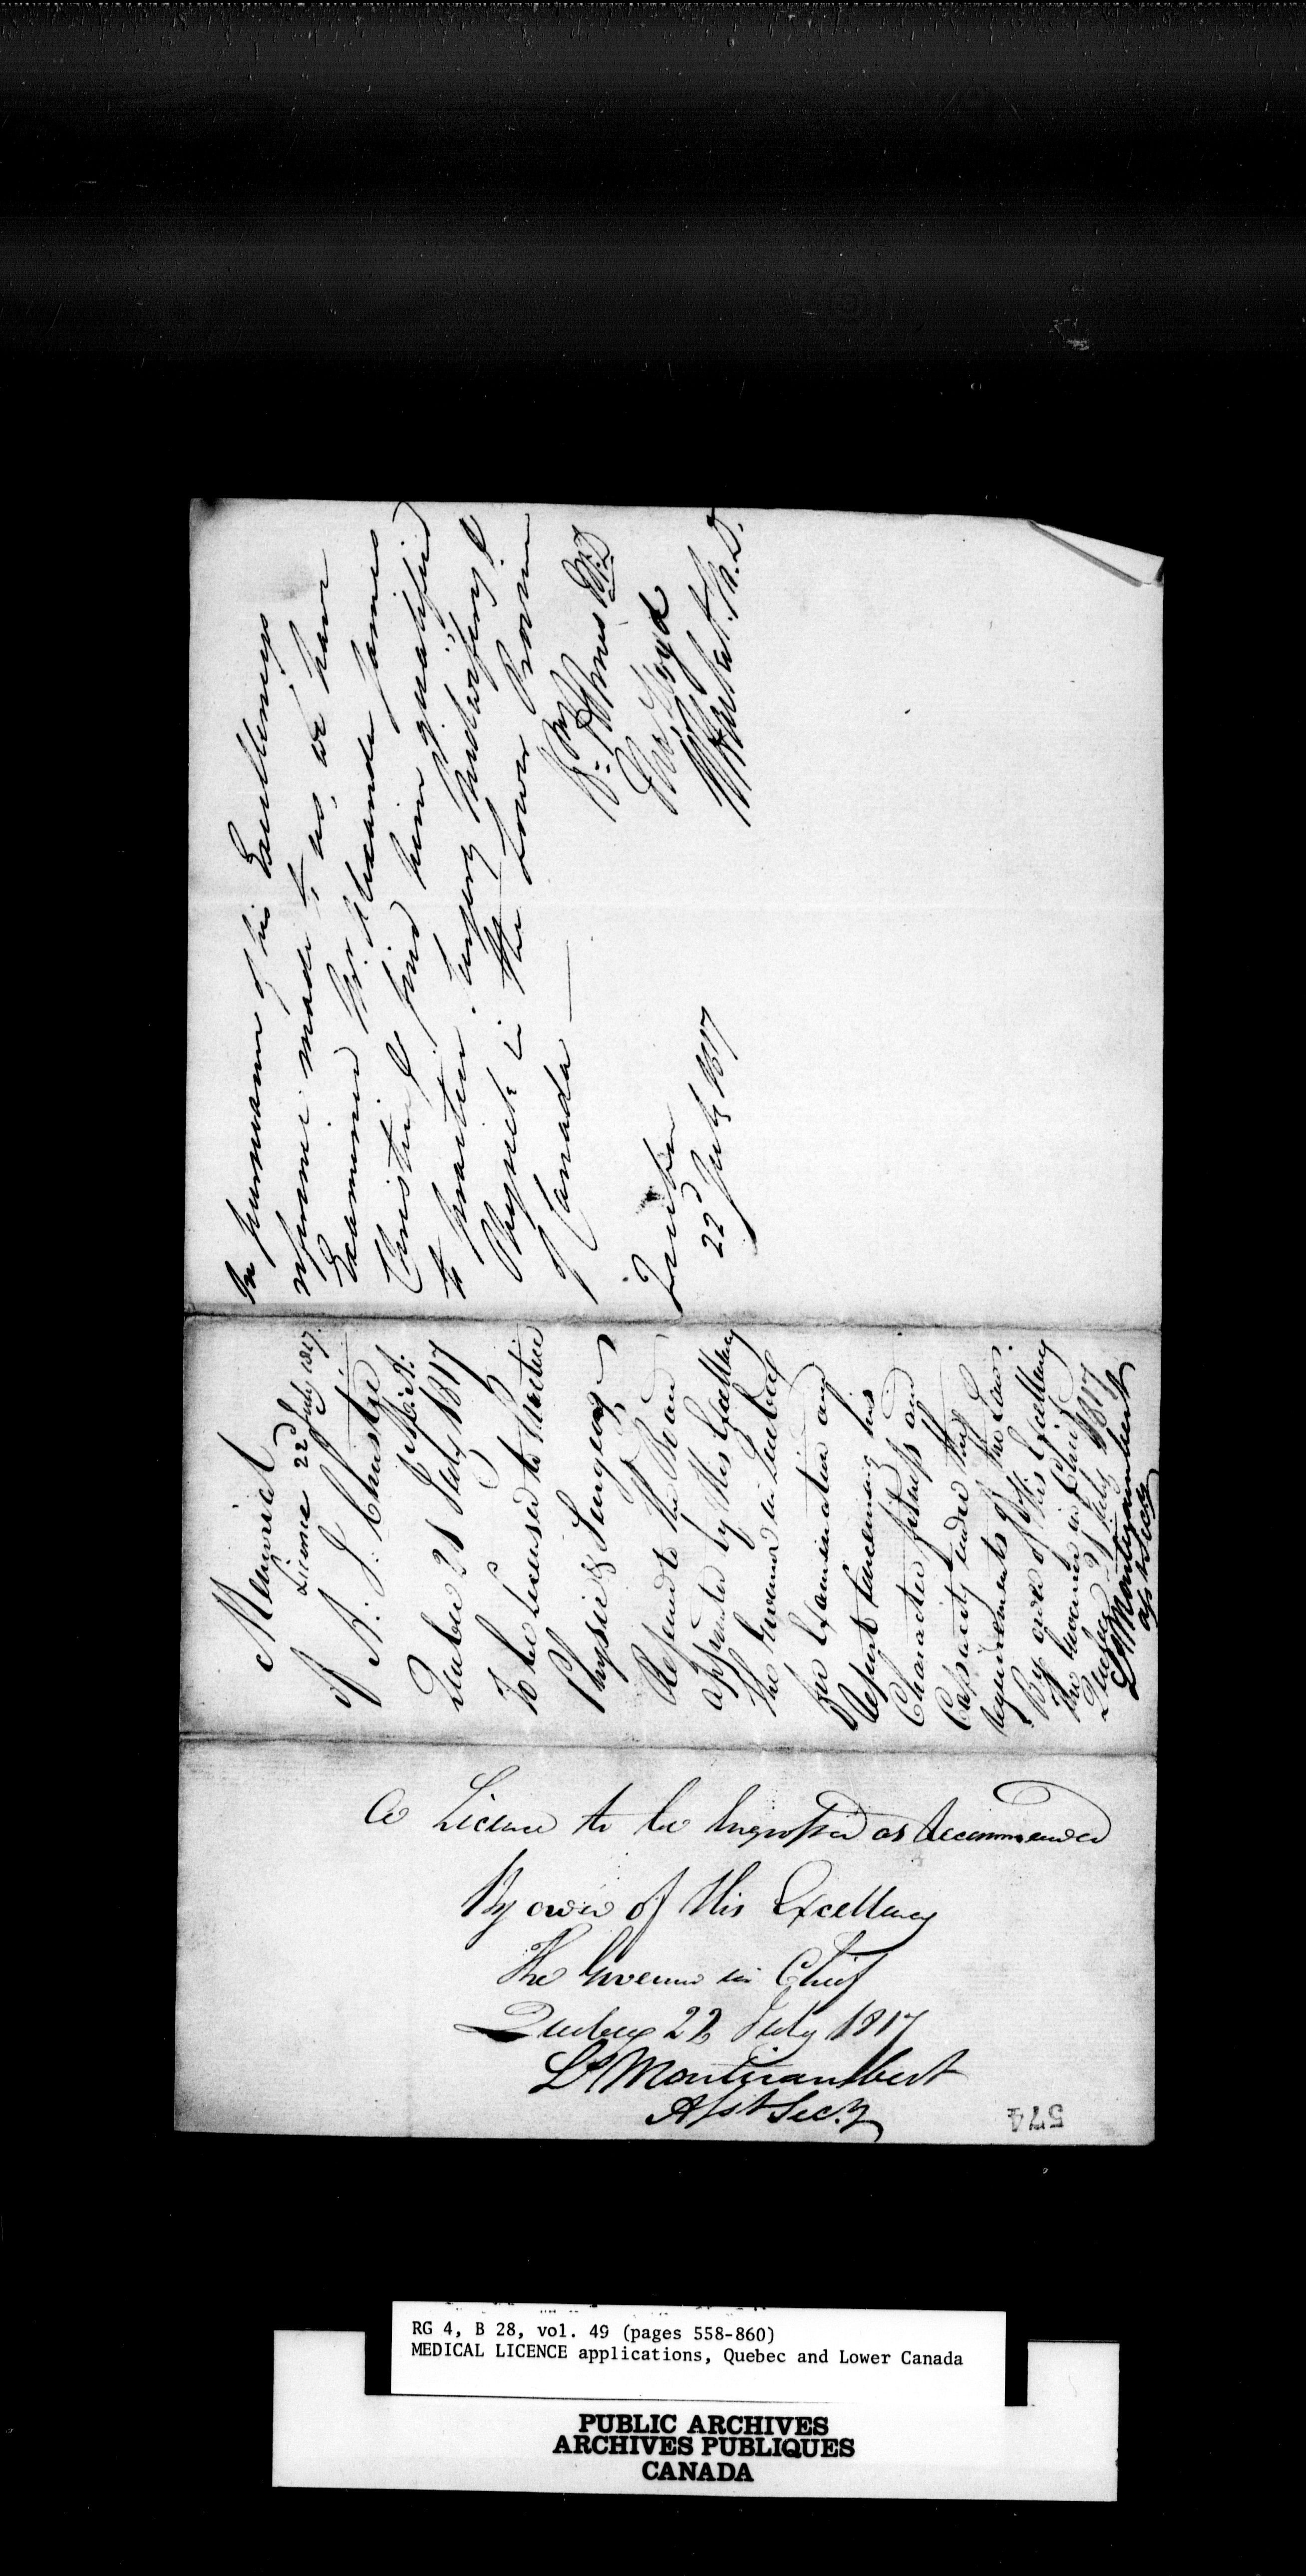 In pursuance of his Excellencys
reference made to us, we have
Examined Mr. Alexander James
Christie & find him qualified
to practice Surgery Midwifery &
Physick in the Lower Province
of Canada —
Quebec
22d July 1817
Lloyd
M.D.
Memorial
Licence 22d July 1817.
of A: J: Christie
Quebec 21 July 1817
To be Licensed to Practice
Physic & Surgery
Referred to the Board
appointed by His Excellency
the Governor in Quebec
for Examination and
Report concerning his
Character fitness and
Capacity under the
requirements of the Law.
By order of His Excellency
The Governor in Chief
Quebec 21 July 1817
Ls Montizambert
Asst Secy
A Licence to be Ingrossed as Recommended
By order of His Excellency
The Governor in Chief
Quebec 22 July 1817
Ls Montizambert
Asst Secy
574
RG 4, B 28, vol. 49 (pages 558-860)
MEDICAL LICENCE applications, Quebec and Lower Canada
PUBLIC ARCHIVES
ARCHIVES PUBLIQUES
CANADA